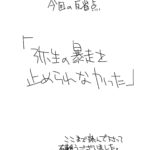 今回の反省点.
「弥生の暴走を
止められなかった」
ここまで読んで下さって
有難うございました。